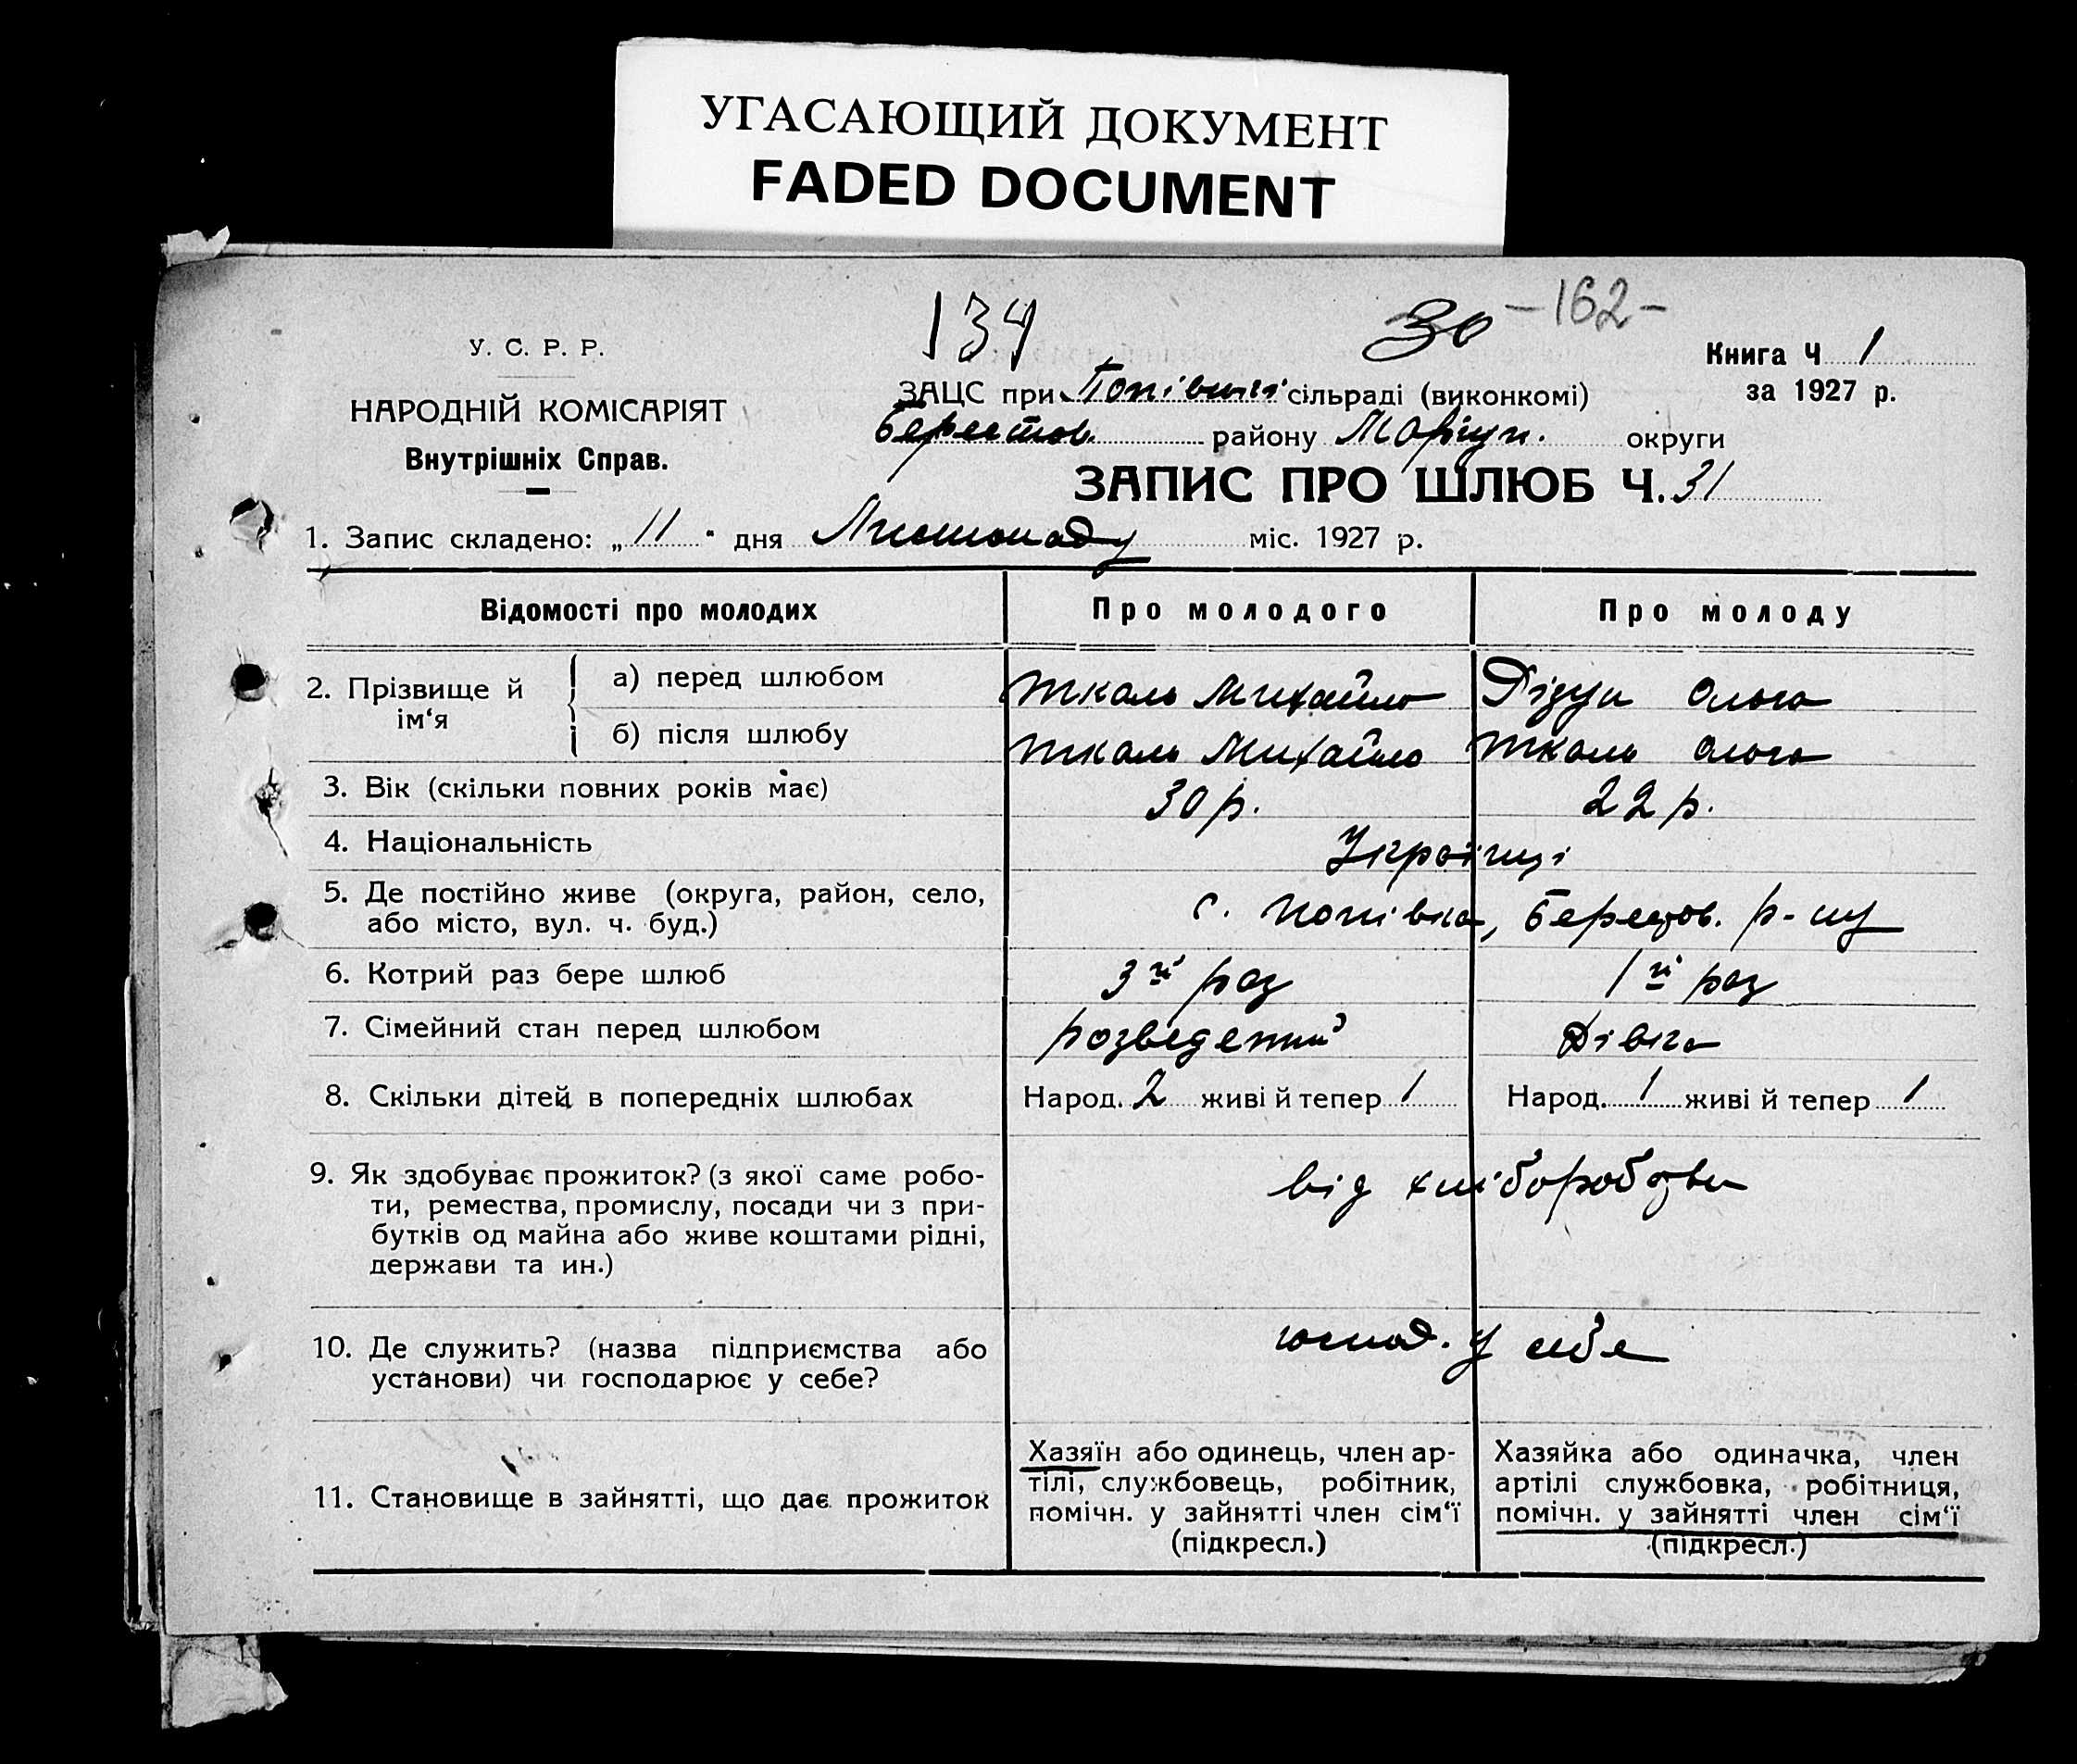 УГАСАЮЩИЙ ДОКУМЕНТ
FADED DOCUMENT
134
30 -162-
У. С. Р. Р.
НАРОДНІЙ КОМІСАРІЯТ
Внутрішніх Справ.
Книга Ч 1
за 1927 р.
ЗАЦС при Попівській сільраді (виконкомі)
Берестов. району Маріуп. округи
ЗАПИС ПРО ШЛЮБ Ч. 31
1. Запис складено: „ 11 " дня Листопаду міс. 1927 р.
Відомості про молодих Про молодого Про молоду
2. Прізвище й ім‘я
а) перед шлюбом Ткаль Михайло Дізун Ольга
б) після шлюбу Ткаль Михайло Ткаль Ольга
3. Вік (скільки повних років має) 30 р. 22 р.
4. Національність Українці
5. Де постійно живе (округа, район, село,
або місто, вул. ч. буд.) с. Попівка, Берестов. р-ну
6. Котрий раз бере шлюб 3й раз 1й раз
7. Сімейний стан перед шлюбом розведений Дівка
8. Скільки дітей в попередніх шлюбах Народ. 2 живі й тепер 1 Народ. 1 живі й тепер 1
9. Як здобуває прожиток? (з якої саме робо-
ти, ремества, промислу, посади чи з при-
бутків од майна або живе коштами рідні,
держави та ин.)
від хліборобства
10. Де служить? (назва підприємства або
установи) чи господарює у себе?
господ. у себе
11. Становище в зайнятті, що дає прожиток
Хазяїн або одинець, член ар-
тілі, службовець, робітник,
помічн. у зайнятті член сім‘ї
(підкресл.)
Хазяйка або одиначка, член
артілі службовка, робітниця,
помічн. у зайнятті член сім‘ї
(підкресл.)